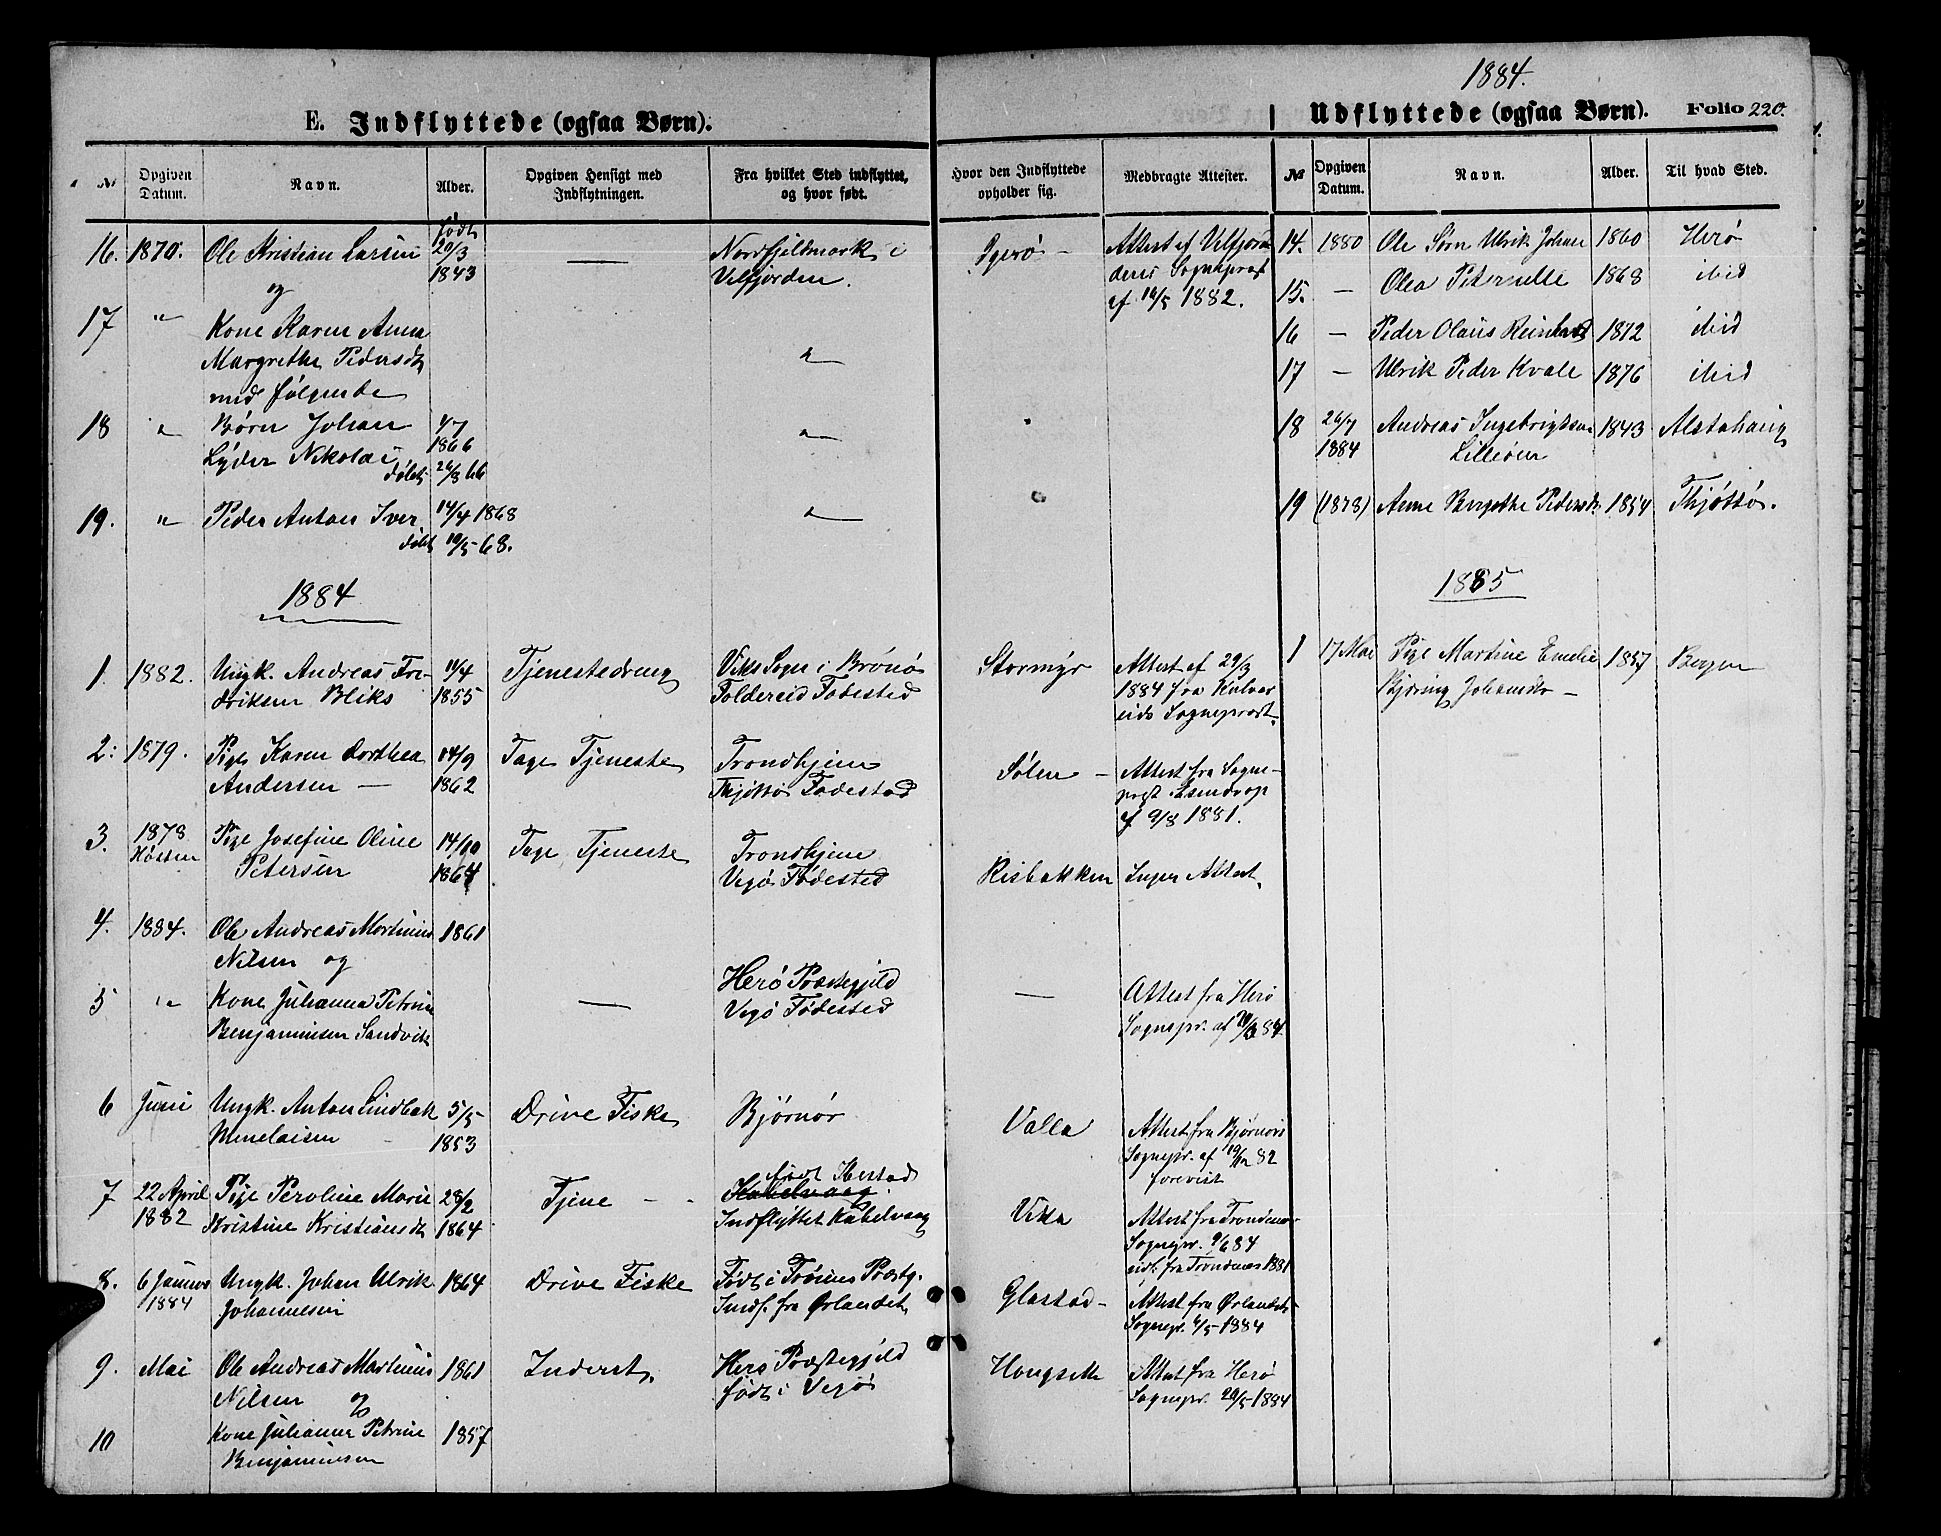 E. Indflyttede (ogsaa Børn).
No
Opgiven Datum.
Navn.
Alder.
Opgiven Hensigt med Indflytningen.
Fra hvilket Sted indflyttet, og hvor født.
Hvor den Indflyttede opholder sig.
Medbragte Attester.
16. 1870. Ole Kristian Larsen født 20/3 1843 — Nordfjeldmark i Velfjorden.
og
Attest af Velfjor
deres Sognepræst
af 16/5 1882.
17 " Kone Karen Anna
Margrethe Pedersdt
med følgende
18 " Børn Johan 4/7 1866
Lyder Nikolai
døbt 26/8 66
19. " Peder Anton Iver 14/4 1868
døbt 10/5 68.
1884
1. 1882. Ungk. Andreas Fre- 11/4 Tjenestedreng Viks Sogn i Brønø Stormyr Attest af 29/3
driksen Bliks 1855 Foldereid Fødested 1884 fra Kolver
eids Sognepræst.
2: 1879. Pige Karen Dorthea 14/9 Tage Tjeneste Trondhjem Sølen — Attest fra Sogne-
Andersen — 1862 Thjøttø Fødested
af 9/8 1881.
3. 1878 Høsten Pige Josefine Oline 14/10 Tage Tjeneste Trondhjem
Petersen 1864 Vegø Fødested Risbakken Ingen Attest.
4. 1884. Ole Andreas Martinus 1861
Nilsen og
5 " Kone Julianna Petrine — Herø Præstegjeld — Attest fra Herø
Benjaminsen Sandvik Vegø Fødested Sognepr. af 84.
6 Juni Ungk. Anton Lindbak 5/5 Drive Fiske Bjørnør Valla Attest fra Bjørnørs
Menelaisen 1853 Sognepr. af 82
forevist
7 22 April Pige Peroline Marie 28/2 Tjene — født Ibestad
Kabelvaag
1882 Kristine Kristiansdt 1864 Indflyttet Kabelvaag Vika Attest fra Trondenes
Sognepr. 9/6 84
udf. fra Trondenes 1881
8. 6 Januar Ungk. Johan Ulrik 1864 Drive Fiske Født i Præstg.
1884 Johannesen Indf. fra Ørlandet Glastad — Attest fra Ørlandets
Sognepr. 6/5 1884
9. Mai Ole Andreas Martinus 1861 Inderst. Herø Præstegjeld Hongsett Attest fra Herø
Nilsen og født i Vegø Sognepr. 20/5 1884
10 Kone Julianna Petrine 1857
Benjaminsen
1884.
Udflyttede (ogsaa Børn). Folio 220.
No
Opgiven Datum.
Navn.
Alder.
Til hvad Sted.
14. 1880 Ole Søren Ulrik Johan 1860 Herø
15. — Olea Peternelle 1868 ibid
16 — Peder Olaus Reinhard 1872 ibid
17 — Ulrik Peder Kvale 1876 ibid
18 26/7 1884 Andreas Ingebrigtsen 1843 Alstahaug
Lilleøen
19 (1878) Anne Bergethe Pedersdt. 1854 Thjøttø.
1885
1 17 Mai Pige Martine Emelie 1857 Bergen
Bjøring Johansdt —